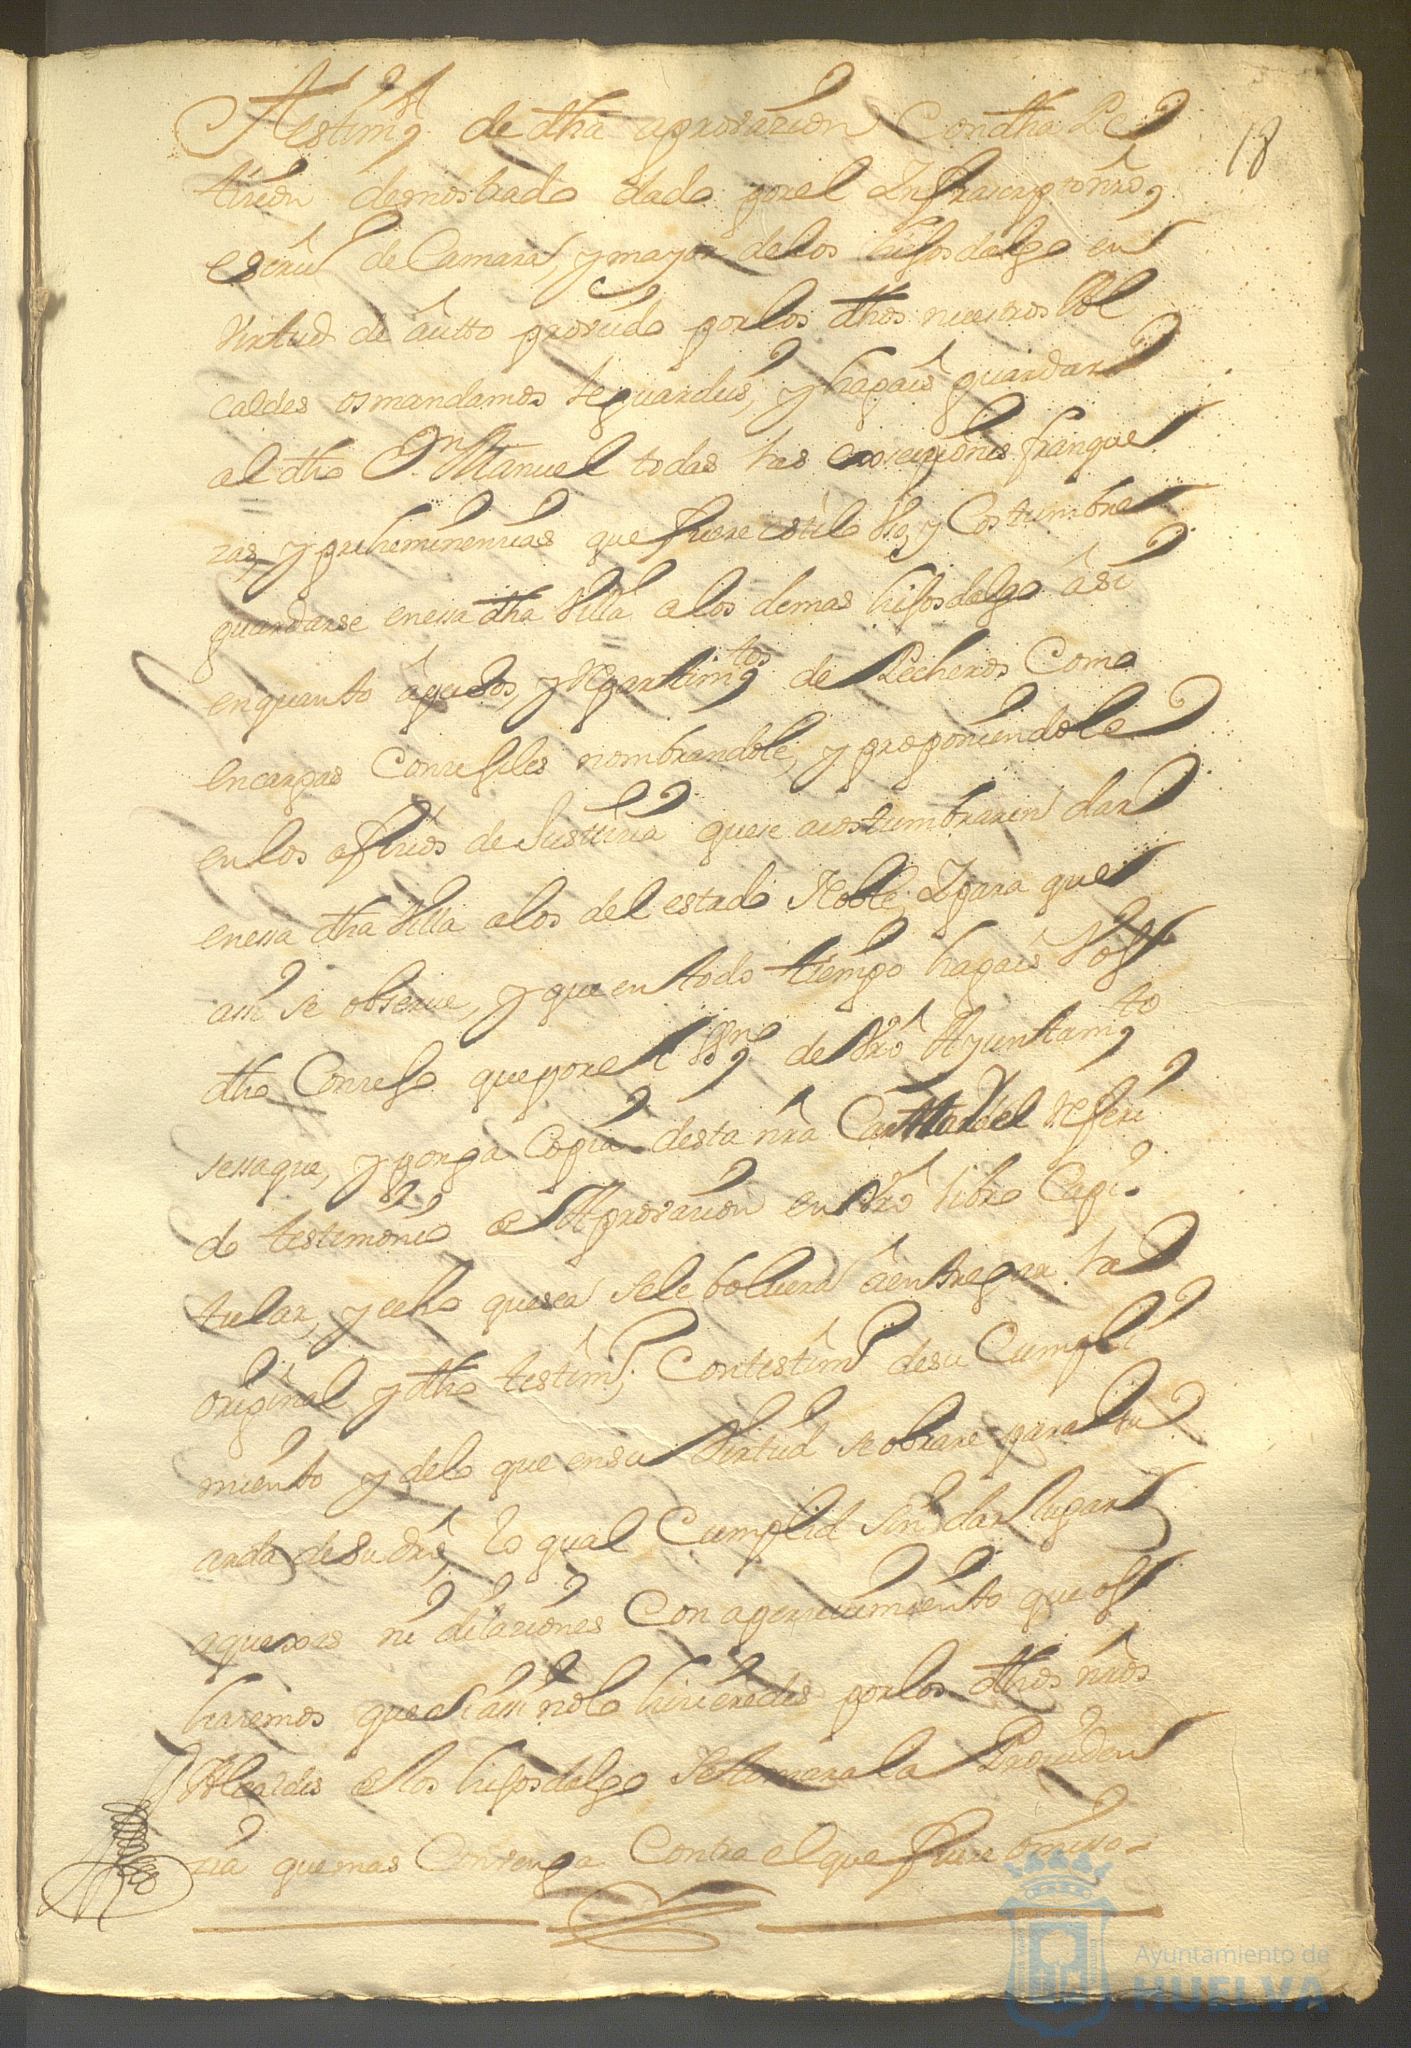 testimº de dha aprovazion con dha Pe
tizion demostrado dado por el Infrascripto nro
escriuº de Camara, y mayor delos hijosdalgo en
virtud de âutto proveido por los dhos nuestros Al
caldes os mandamos le guardeis, y hagais guardar
al dho Dn Manuel todas las exsempziones franque
zas, y preheminenzias que fuere estilo Vso, y Costumbre
guardarse en essa dha Villa alos demas hijosdalgo âsi
enquanto â pechos, y Repartimtos de Pecheros Como
en cargas Consejiles nombrandole, y proponiendole
en los ofizios de Justizia que se acostumbraren dar
en essa dha Villa alos del estado Noble, Y para que
asi se observe, y que en todo tiempo hagais Vos
dho Consejo que por el Ssno de Vro Ayuntamto
se saque, y ponga Copia desta nra Cartta del Referi
do testimonio de Aprovazion en Vro libro Capi
tular, y echo que sea se le bolvera â entregar la
original y dho testimº, Con testimº de su Cumpli
miento y delo que en su Virtud se obrare para Gu
arda de su drô, lo qual Cumplid sin dar lugar
a quexas ni dilaziones Con aperzivimiento que os
hazemos que si assi no lo hiziéredes por los dhos nros
Alcaldes de los hijosdalgo se tomara la Providen
zia que mas Convenga Contra el que fuere omisso
18
Ayuntamiento de
HUELVA